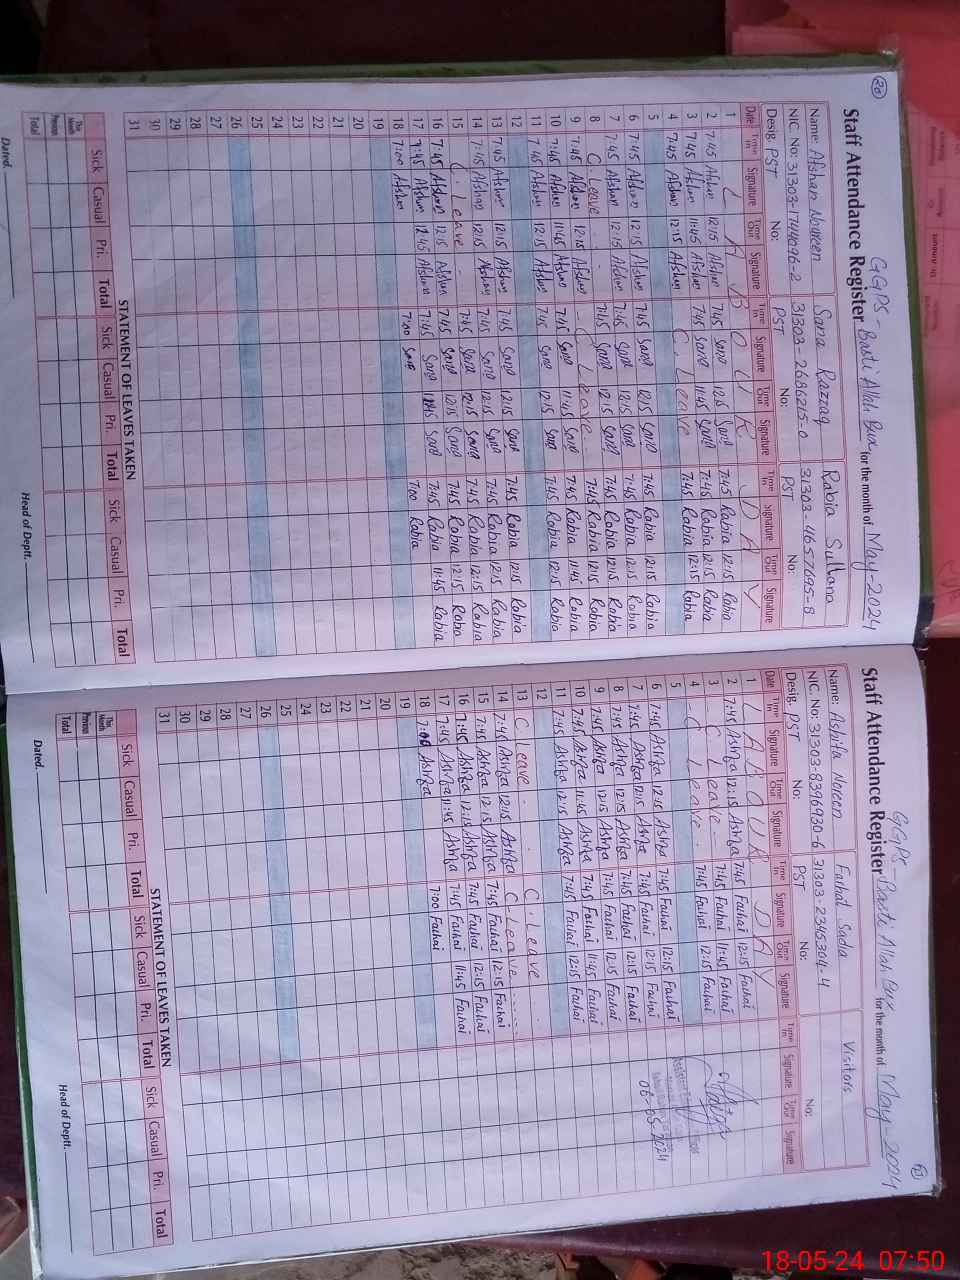 20
Staff Attendance Register for the month of May-2024
GGPS - Basti Allah Bux
Name: Afshan Noureen
Sana Razzaq
Rabia Sultana
NIC. No: 31303-1744096-2
31303-2686215-0
31303-4165769
Desig. PST No:
PST No:
PST No:
Date Time In Signature Time Out Signature Time In Signature Time Out Signature Time In Signature Time Out Signature
1 LABOUR DAY
2 7:45 Afshan 12:15 Afshan 7:45 Sana 12:15 Sana 7:45 Rabia 12:15 Rabia
3 7:45 Afshan 11:45 Afshan 7:45 Sana 11:45 Sana 7:45 Rabia 12:15 Rabia
4 7:45 Afshan 12:15 Afshan C. Leave 7:45 Rabia 12:15 Rabia
5
6 7:45 Afshan 12:15 Afshan 7:45 Sana 12:15 Sana 7:45 Rabia 12:15 Rabia
7 7:45 Afshan 12:15 Afshan 7:45 Sana 12:15 Sana 7:45 Rabia 12:15 Rabia
8 C. Leave 7:45 Sana 12:15 Sana 7:45 Rabia 12:15 Rabia
9 7:45 Afshan 12:15 Afshan C Leave 7:45 Rabia 12:15 Rabia
10 7:45 Afshan 11:45 Afshan 7:45 Sana 11:45 Sana 7:45 Rabia 11:45 Rabia
11 7:45 Afshan 12:15 Afshan 7:45 Sana 12:15 Sana 7:45 Rabia 12:15 Rabia
12
13 7:45 Afshan 12:15 Afshan 7:45 Sana 12:15 Sana 7:45 Rabia 12:15 Rabia
14 7:45 Afshan 12:15 Afshan 7:45 Sana 12:15 Sana 7:45 Rabia 12:15 Rabia
15 C. Leave 7:45 Sana 12:15 Sana 7:45 Rabia 12:15 Rabia
16 7:45 Afshan 12:15 Afshan 7:45 Sana 12:15 Sana 7:45 Rabia 12:15 Rabia
17 7:45 Afshan 12:45 Afshan 7:45 Sana Sana 7:45 Rabia 11:45 Rabia
18 7:00 Afshan 7:00 Sana 7:00 Rabia
19
20
21
22
23
24
25
26
27
28
29
30
31
STATEMENT OF LEAVES TAKEN
Sick Casual Pri. Total Sick Casual Pri. Total Sick Casual Pri. Total
This Month
Previous
Total
Dated.
Head of Deptt.
Staff Attendance Register for the month of May-2024
GGPS-Basti Allah Bux
Name: Ashifa Noreen
Farhat Sadia
Visitors
NIC. No: 31303-8396920-6
31303-2345304-4
Desig. PST No:
PST No:
No:
Date Time In Signature Time Out Signature Time In Signature Time Out Signature Time In Signature Time Out Signature
1 LABOUR DAY
2 7:45 Ashifa 12:15 Ashifa 7:45 Farhat 12:15 Farhat
3 C. Leave 7:45 Farhat 11:45 Farhat
4 C Leave 7:45 Farhat 12:15 Farhat
5
6 7:45 Ashifa 12:15 Ashifa 7:45 Farhat 12:15 Farhat
7 7:45 Ashifa 12:15 Ashifa 7:45 Farhat 12:15 Farhat
8 7:45 Ashifa 12:15 Ashifa 7:45 Farhat 12:15 Farhat
9 7:45 Ashifa 12:15 Ashifa 7:45 Farhat 12:15 Farhat
10 7:45 Ashifa 11:45 Ashifa 7:45 Farhat 11:45 Farhat
11 7:45 Ashifa 12:15 Ashifa 7:45 Farhat 12:15 Farhat
12
13 C. Leave C. Leave
14 7:45 Ashifa 12:15 Ashifa C. Leave
15 7:45 Ashifa 12:15 Ashifa 7:45 Farhat 12:15 Farhat
16 7:45 Ashifa 12:15 Ashifa 7:45 Farhat 12:15 Farhat
17 7:45 Ashifa 11:45 Ashifa 7:45 Farhat 11:45 Farhat
18 7:00 Ashifa 7:00 Farhat
19
20
21
22
23
24
25
26
27
28
29
30
31
06-05-2024
STATEMENT OF LEAVES TAKEN
Sick Casual Pri. Total Sick Casual Pri. Total Sick Casual Pri. Total
This Month
Previous
Total
Dated.
Head of Deptt.
18-05-24 07:50